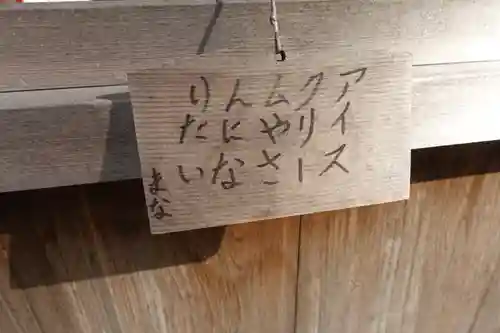 アイス
クリー
ムやさ
んにな
りたい
まな